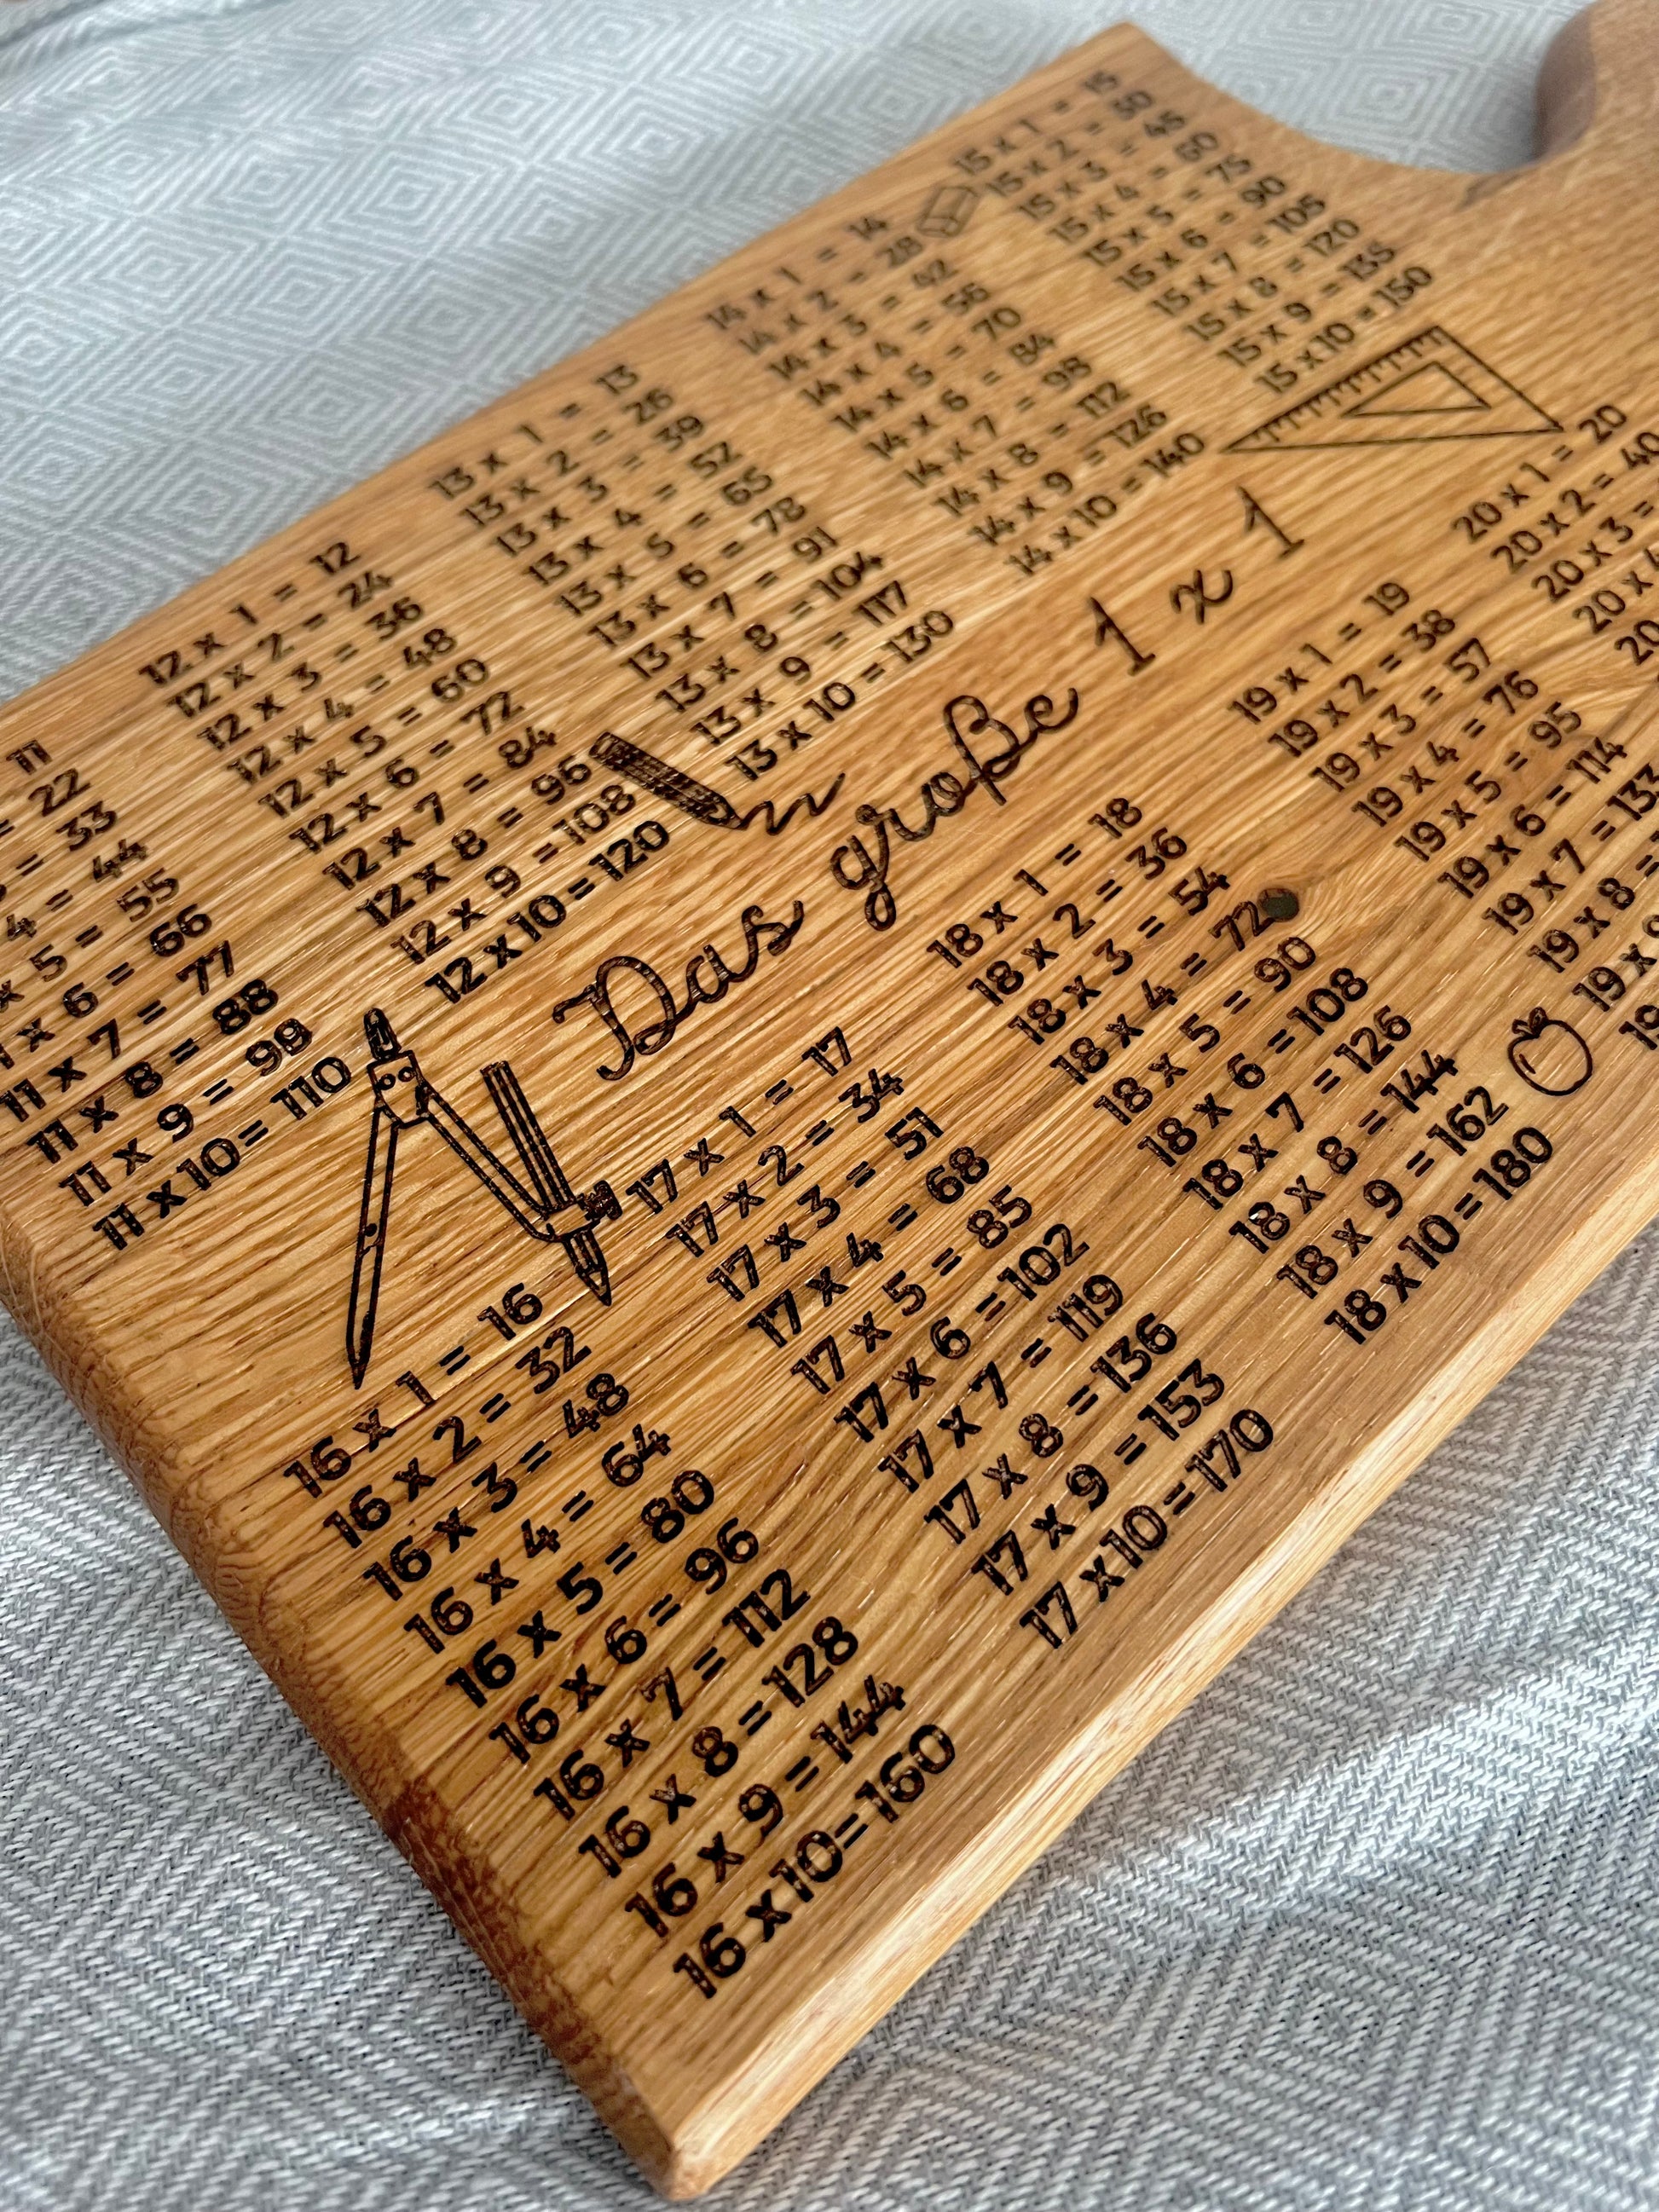 11
= 22
3 = 33
4 = 44
x 5 = 55
x 6 = 66
11 x 7 = 77
11 x 8 = 88
11 x 9 = 99
11 x 10 = 110
12 x 1 = 12
12 x 2 = 24
12 x 3 = 36
12 x 4 = 48
12 x 5 = 60
12 x 6 = 72
12 x 7 = 84
12 x 8 = 96
12 x 9 = 108
12 x 10 = 120
13 x 1 = 13
13 x 2 = 26
13 x 3 = 39
13 x 4 = 52
13 x 5 = 65
13 x 6 = 78
13 x 7 = 91
13 x 8 = 104
13 x 9 = 117
13 x 10 = 130
14 x 1 = 14
14 x 2 = 28
14 x 3 = 42
14 x 4 = 56
14 x 5 = 70
14 x 6 = 84
14 x 7 = 98
14 x 8 = 112
14 x 9 = 126
14 x 10 = 140
15 x 1 = 15
15 x 2 = 30
15 x 3 = 45
15 x 4 = 60
15 x 5 = 75
15 x 6 = 90
15 x 7 = 105
15 x 8 = 120
15 x 9 = 135
15 x 10 = 150
Das große 1 x 1
16 x 1 = 16
16 x 2 = 32
16 x 3 = 48
16 x 4 = 64
16 x 5 = 80
16 x 6 = 96
16 x 7 = 112
16 x 8 = 128
16 x 9 = 144
16 x 10 = 160
17 x 1 = 17
17 x 2 = 34
17 x 3 = 51
17 x 4 = 68
17 x 5 = 85
17 x 6 = 102
17 x 7 = 119
17 x 8 = 136
17 x 9 = 153
17 x 10 = 170
18 x 1 = 18
18 x 2 = 36
18 x 3 = 54
18 x 4 = 72
18 x 5 = 90
18 x 6 = 108
18 x 7 = 126
18 x 8 = 144
18 x 9 = 162
18 x 10 = 180
19 x 1 = 19
19 x 2 = 38
19 x 3 = 57
19 x 4 = 76
19 x 5 = 95
19 x 6 = 114
19 x 7 = 133
19 x 8 =
19 x
19
20 x 1 = 20
20 x 2 = 40
20 x 3 =
20 x 4
20